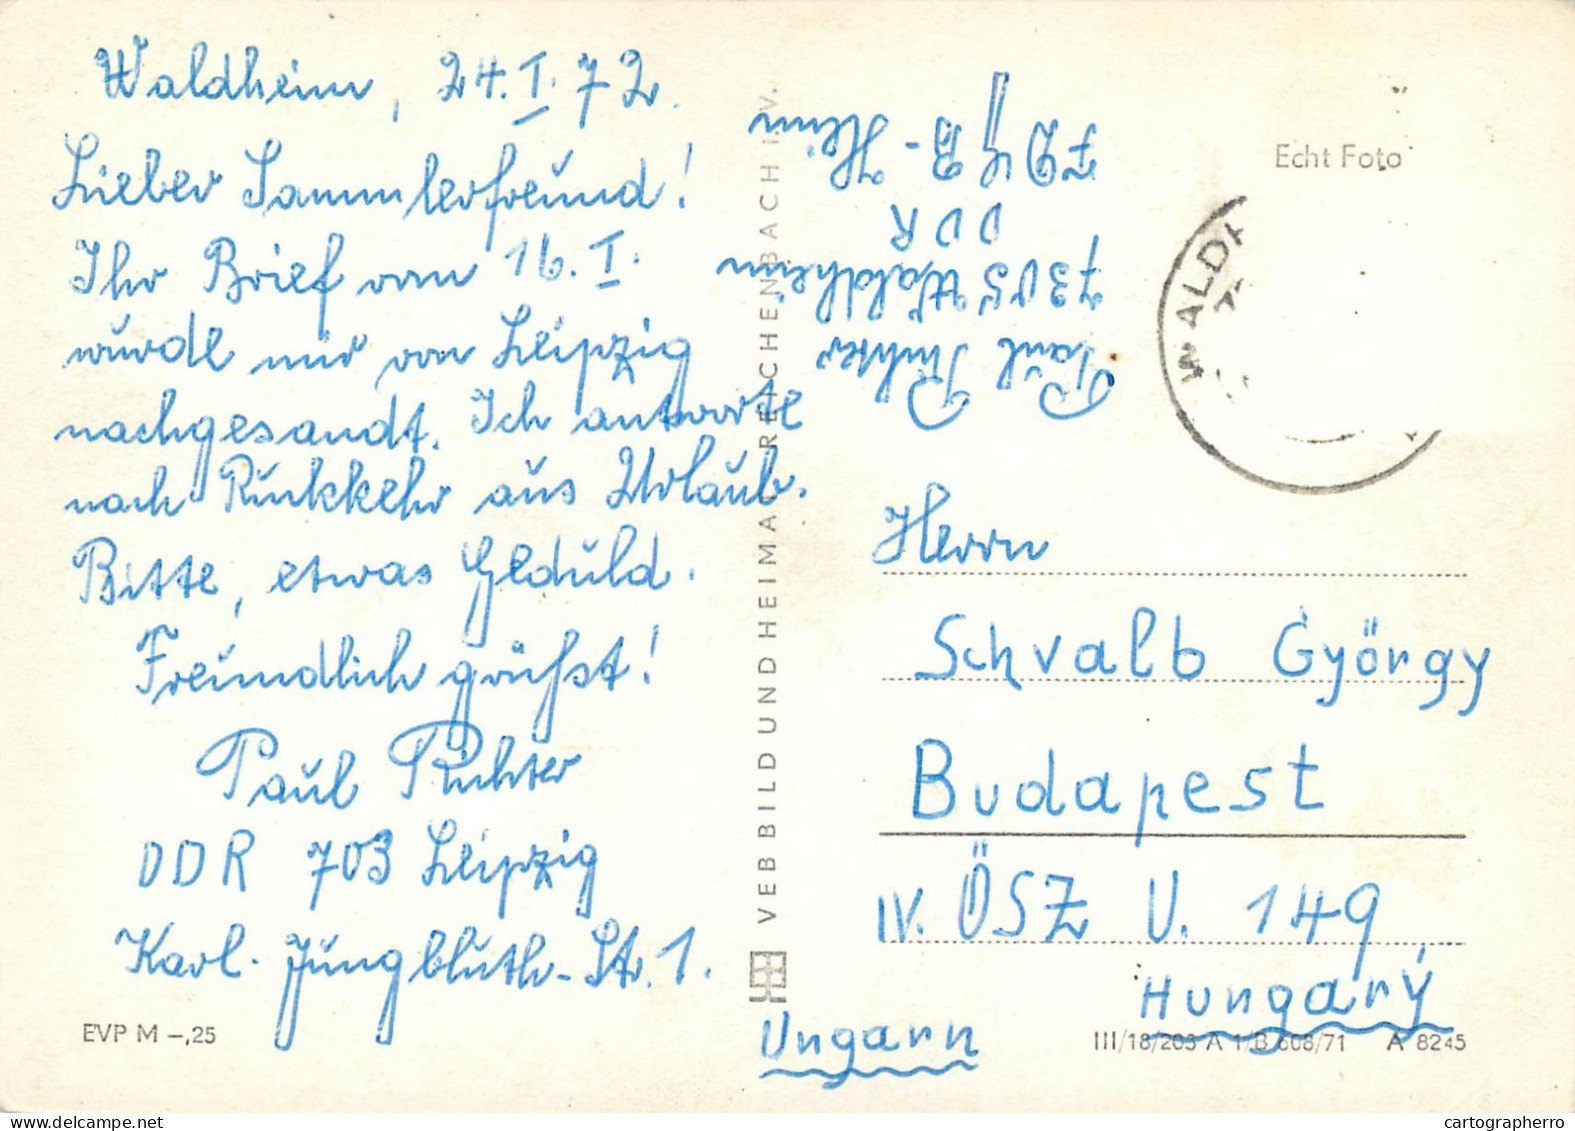 Waldheim, 24.I.72.
Lieber Sammlerfreund!
Ihr Brief vom 16.I.
wurde mir von Leipzig
nachgesandt. Ich antworte
nach Rückkehr aus Urlaub.
Bitte, etwas Geduld.
Freundlich grüßst!
Paul Richter
DDR 703 Leipzig
Karl-Jungbluth-Str. 1.
EVP M –,25
VEB BILD UND HEIMAT REICHENBACH I. V.
Paul Richter
7305 Waldheim
DDR
Heim
Echt Foto
WALDH
Herrn
Schvalb György
Budapest
IV. ÖSZ U. 149,
Hungary
Ungarn
III/18/203 A 1/B 608/71 A 8245
cartographerro